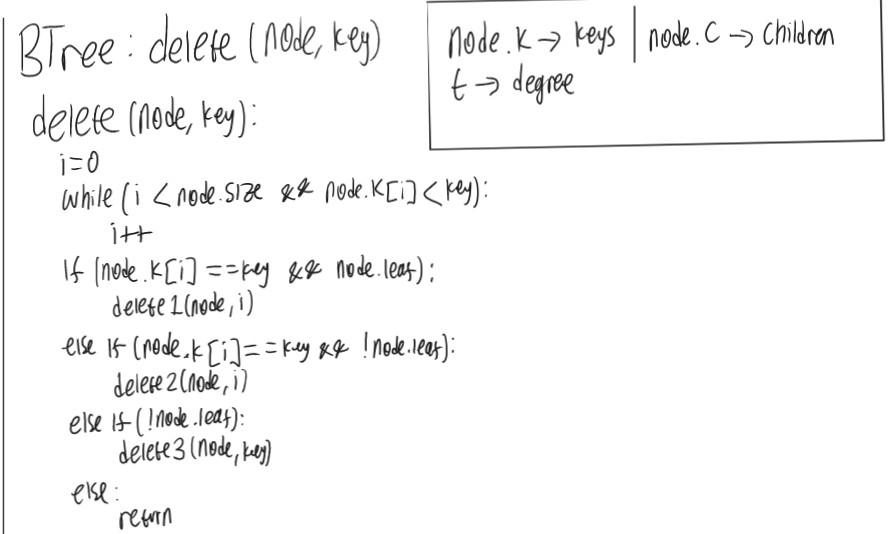 BTree: delete (node, key)
node.K → keys | node.C → children
t → degree
delete (node, key):
i=0
while (i < node.size && node.K[i] < key):
i++
If (node.K[i] == key && node.leaf):
delete1(node, i)
else If (node.K[i] == key && !node.leaf):
delete2(node, i)
else If (!node.leaf):
delete3(node, key)
else:
return